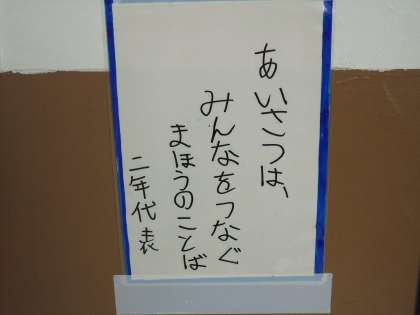 あいさつは、
みんなをつなぐ
まほうのことば
二年代表